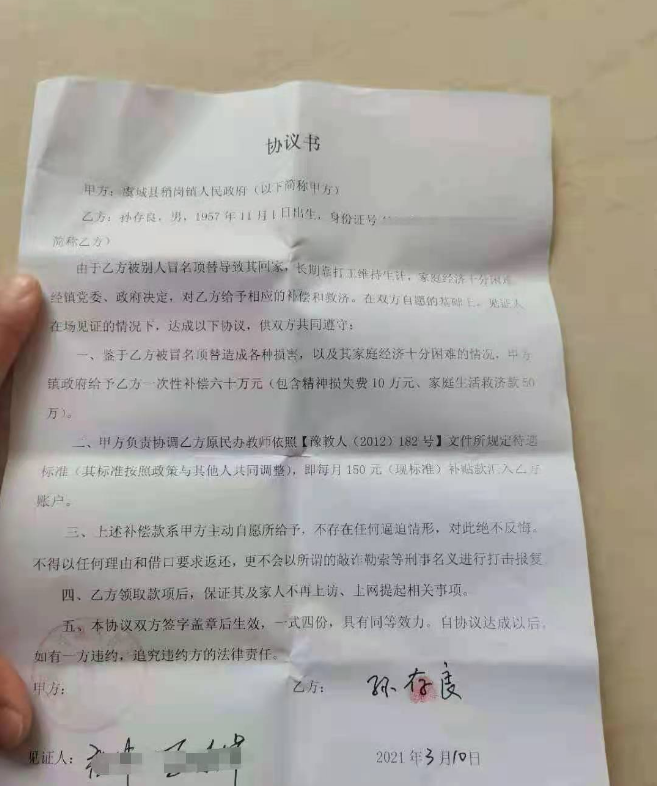 协议书
甲方：虞城县稍岗镇人民政府（以下简称甲方）
乙方：孙存良，男，1957年11月1日出生，身份证号
简称乙方）
由于乙方被别人冒名顶替导致其回家，长期靠打工维持生计，家庭经济十分困难
经镇党委、政府决定，对乙方给予相应的补偿和救济。在双方自愿的基础上，见证人
在场见证的情况下，达成以下协议，供双方共同遵守：
一、鉴于乙方被冒名顶替造成各种损害，以及其家庭经济十分困难的情况，甲方
镇政府给予乙方一次性补偿六十万元（包含精神损失费10万元、家庭生活救济款50
万）。
二、甲方负责协调乙方原民办教师依照【豫教人（2012）182号】文件所规定待遇
标准（其标准按照政策与其他人共同调整），即每月150元（现标准）补贴款汇入乙方
账户。
三、上述补偿款系甲方主动自愿所给予，不存在任何逼迫情形，对此绝不反悔。
不得以任何理由和借口要求返还，更不会以所谓的敲诈勒索等刑事名义进行打击报复
四、乙方领取款项后，保证其及家人不再上访、上网提起相关事项。
五、本协议双方签字盖章后生效，一式四份，具有同等效力。自协议达成以后，
如有一方违约，追究违约方的法律责任。
甲方： 乙方：孙存良
见证人： 2021年3月10日